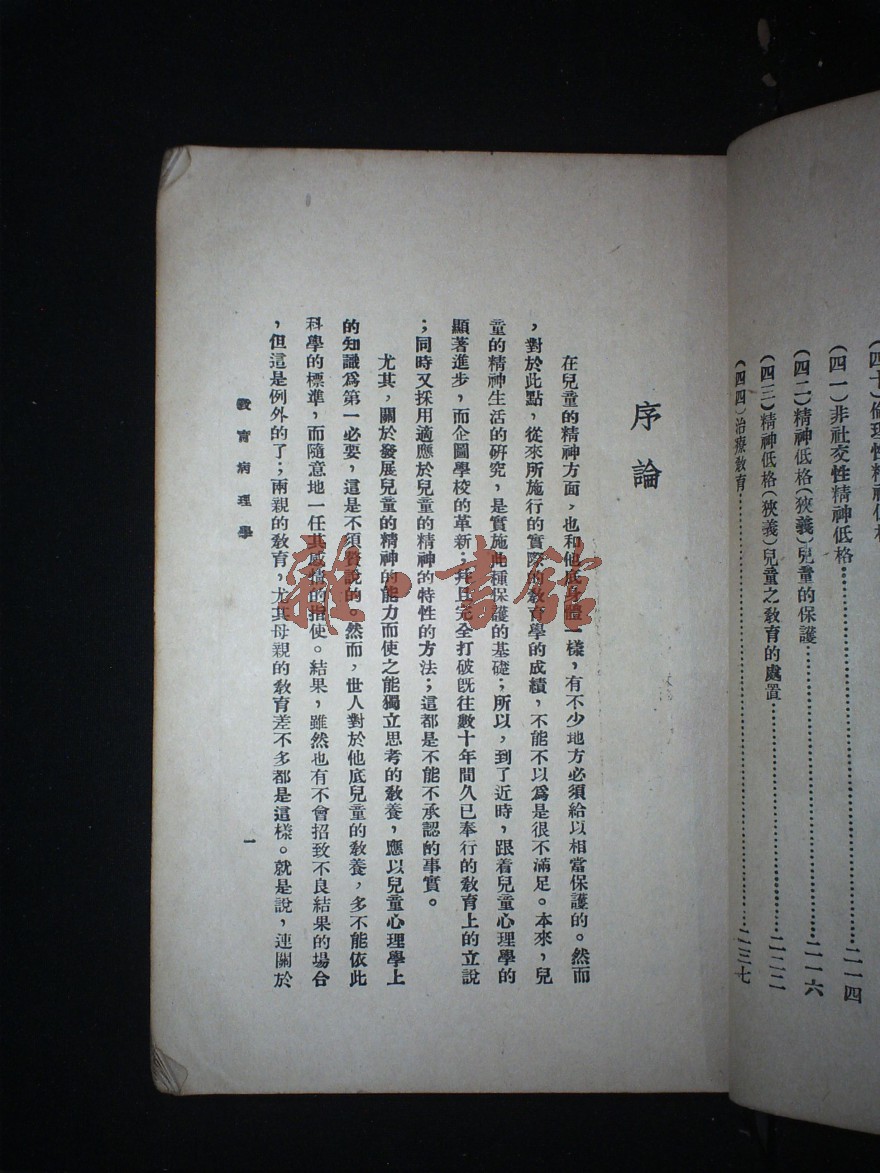 (四十)倫理性精神低格
(四一)非社交性精神低格……………………二一四
(四二)精神低格(狹義)兒童的保護……………………二一六
(四三)精神低格(狹義)兒童之教育的處置……………………二二二
(四四)治療教育……………………二三七
序論
在兒童的精神方面,也和他底身體一樣,有不少地方必須給以相當保護的。然而
,對於此點,從來所施行的實際的教育學的成績,不能不以爲是很不滿足。本來,兒
童的精神生活的研究,是實施此種保護的基礎;所以,到了近時,跟着兒童心理學的
顯著進步,而企圖學校的革新;幷且完全打破旣往數十年間久已奉行的教育上的立說
;同時又採用適應於兒童的精神的特性的方法;這都是不能不承認的事實。
尤其,關於發展兒童的精神的能力而使之能獨立思考的教養,應以兒童心理學上
的知識爲第一必要,這是不須贅說的。然而,世人對於他底兒童的教養,多不能依此
科學的標準,而隨意地一任其感情的指使。結果,雖然也有不會招致不良結果的場合
,但這是例外的了;兩親的教育,尤其母親的教育差不多都是這樣。就是說,連關於
教育病理學
一
雜·書館